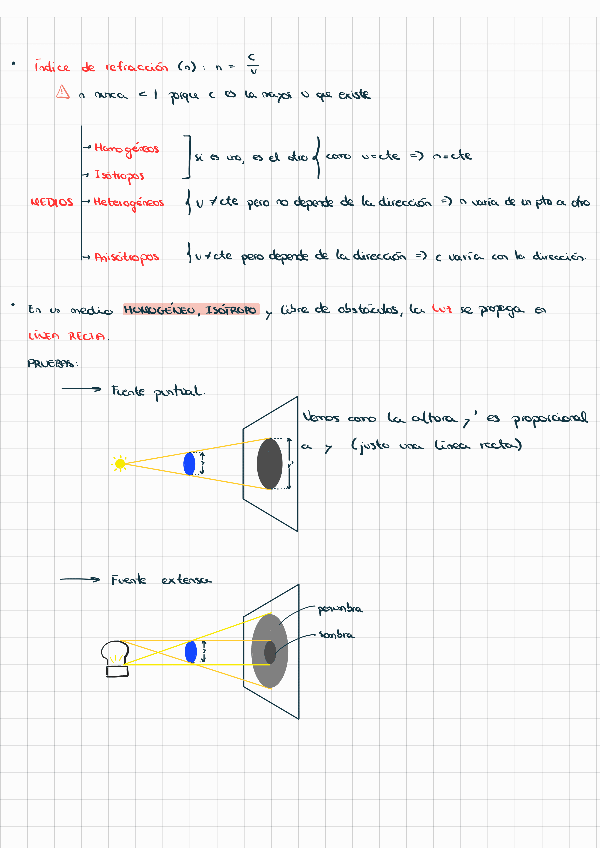 • Índice de refracción (n): n = c/v
⚠ n nunca < 1 porque c es la mayor v que existe
MEDIOS
→ Homogéneos
→ Isótropos
] si es uno, es el otro { como v=cte => n=cte
→ Heterogéneos { v ≠ cte pero no depende de la dirección => n varía de un pto a otro
→ Anisótropos { v ≠ cte pero depende de la dirección => c varía con la dirección.
• En un medio HOMOGÉNEO, ISÓTROPO y libre de obstáculos, la luz se propaga en
LÍNEA RECTA.
PRUEBAS:
→ Fuente puntual.
Vemos como la altura y' es proporcional
a y (justo una línea recta)
y
y'
→ Fuente extensa
penumbra
sombra
y